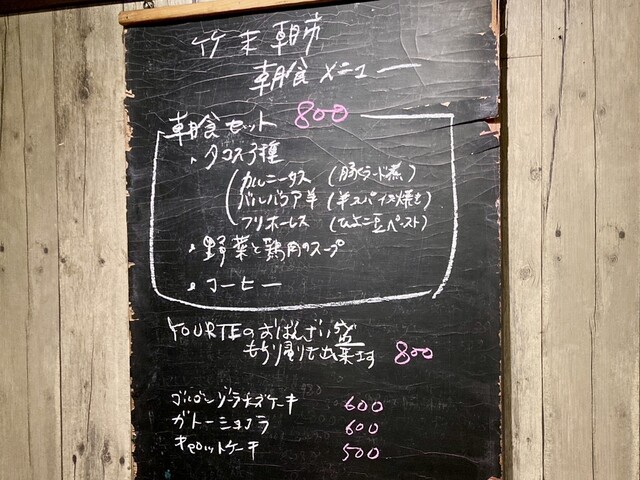 竹末朝市
朝食メニュー
朝食セット 800
・タコス3種
カルニータス (豚ラード煮)
バルバコア羊 (羊スパイス焼き)
フリホーレス (ひよこ豆ペースト)
・野菜と鶏肉のスープ
・コーヒー
YOURTEのおばんざい
もち帰りで出来ます 800
ゴルゴンゾーラチーズケーキ 600
ガトーショコラ 600
キャロットケーキ 500